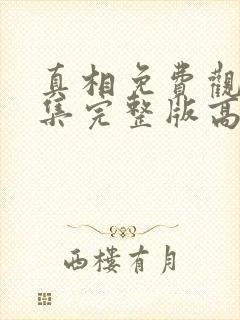 真相免費觀
集完整版高
西樓有月